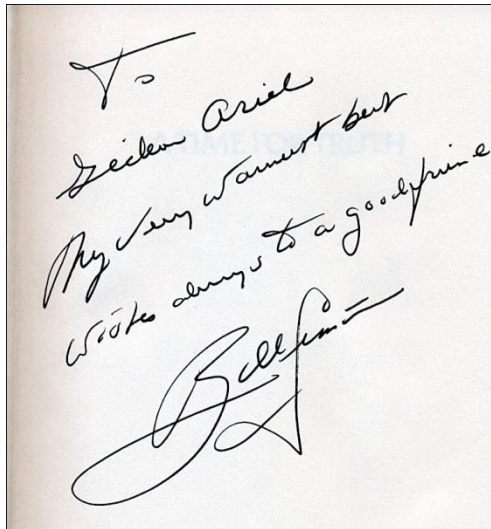 To
Gideon Ariel
My Very Warmest best
Wishes always to a good friend
Bill Simon
A TIME FOR TRUTH